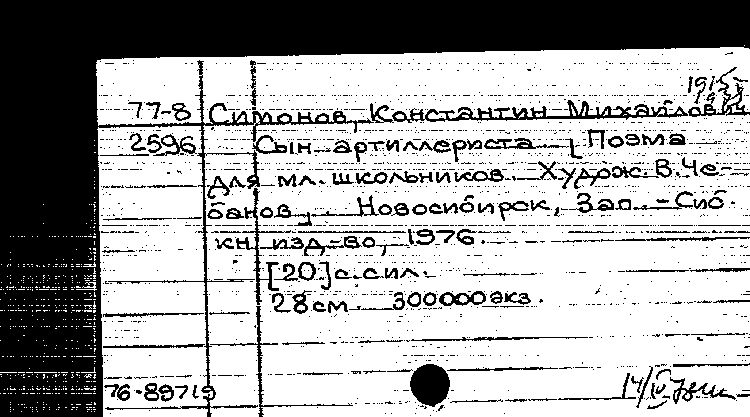 1915-
77-8 Симонов, Константин Михайлович
2596 Сын артиллериста. [Поэма
для мл. школьников. Худож. В. Че-
банов]. Новосибирск, Зап.-Сиб.
кн изд-во, 1976.
[20]с. с ил.
28см. 300000экз.
76-89719
14/IV